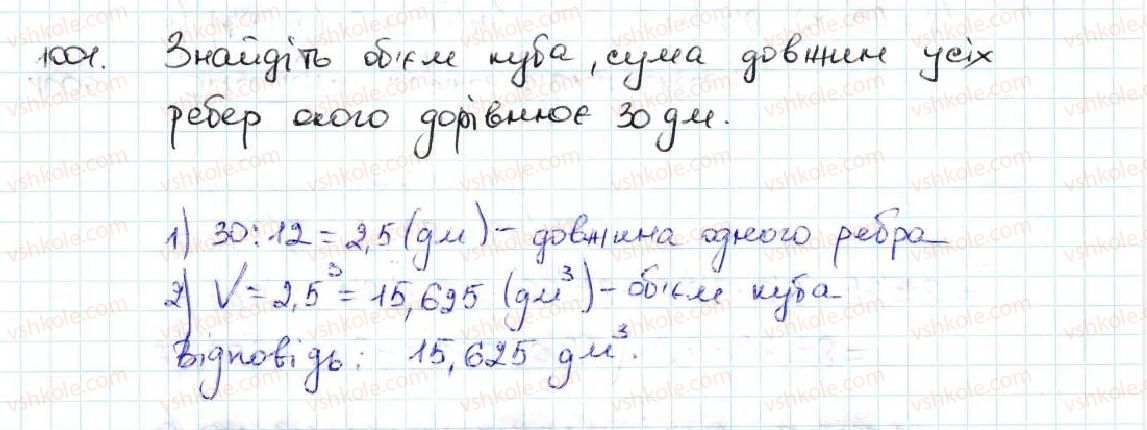 1001. Знайдіть об'єм куба, сума довжин усіх
ребер якого дорівнює 30 дм.
1) 30:12=2,5 (дм) - довжина одного ребра
2) V=2,5³=15,625 (дм³) - об'єм куба
Відповідь: 15,625 дм³.